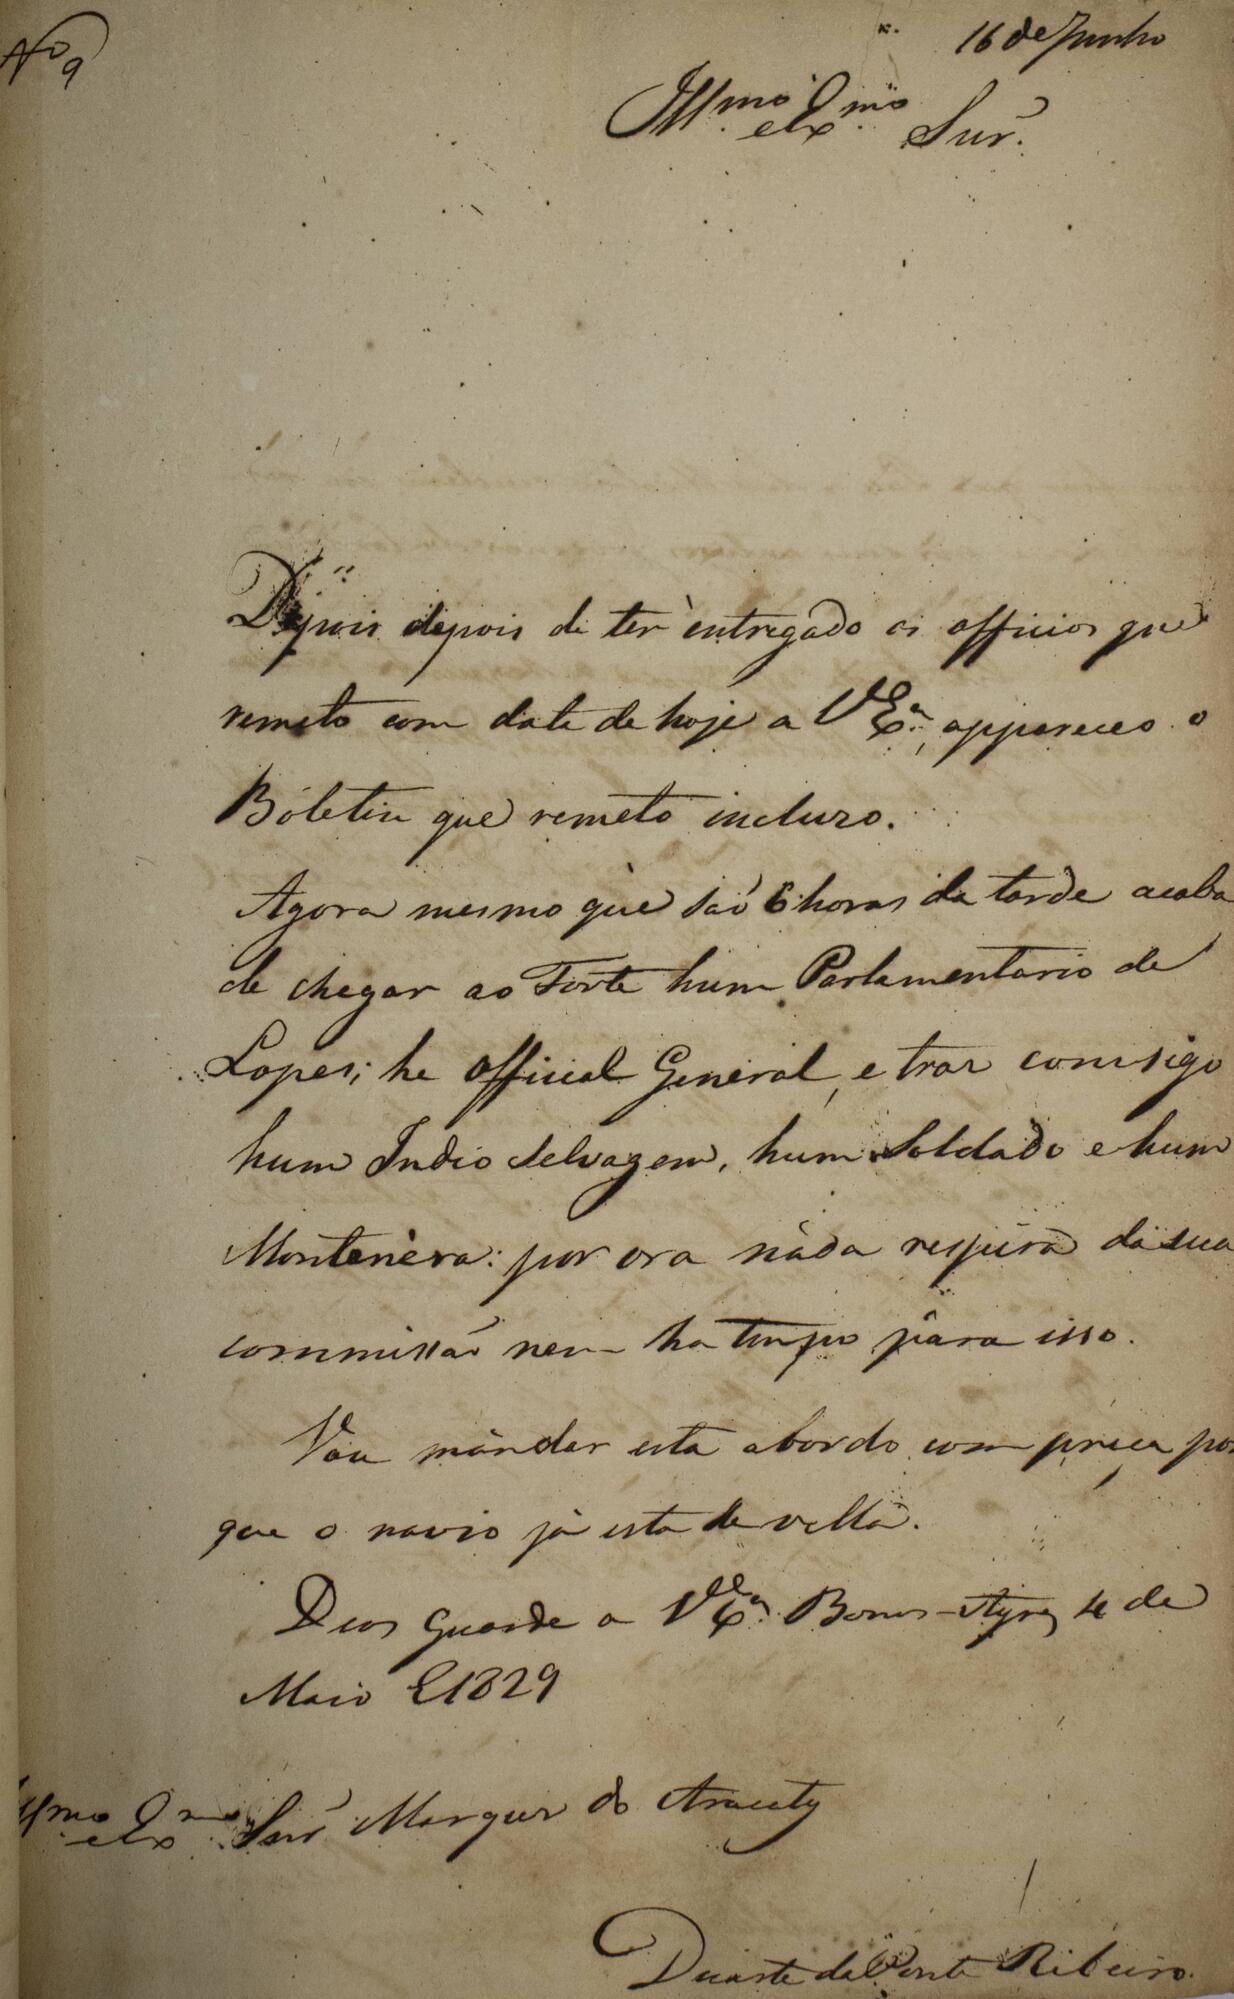 Nº 9
16 de Junho
Illmo e Exmo Snr.
Depois depois de ter entregado os officios que
remeto com data de hoje a VExª, appareceo o
Boletin que remeto incluzo.
Agora mesmo que saõ 6 horas da tarde acaba
de chegar ao Forte hum Parlamentario de
Lopes; he official General, e traz comsigo
hum Indio selvagem, hum Soldado e hum
Montenèra: por ora nada respira da sua
commissaõ nem ha tempo para isso.
Vou mandar esta abordo com preça por
que o navio já esta de vella.
Deos Guarde a VExª. Bonos-Ayres 4 de
Maio de 1829
Illmo e Exmo Snr Marquez do Aracaty
Duarte da Ponte Ribeiro.